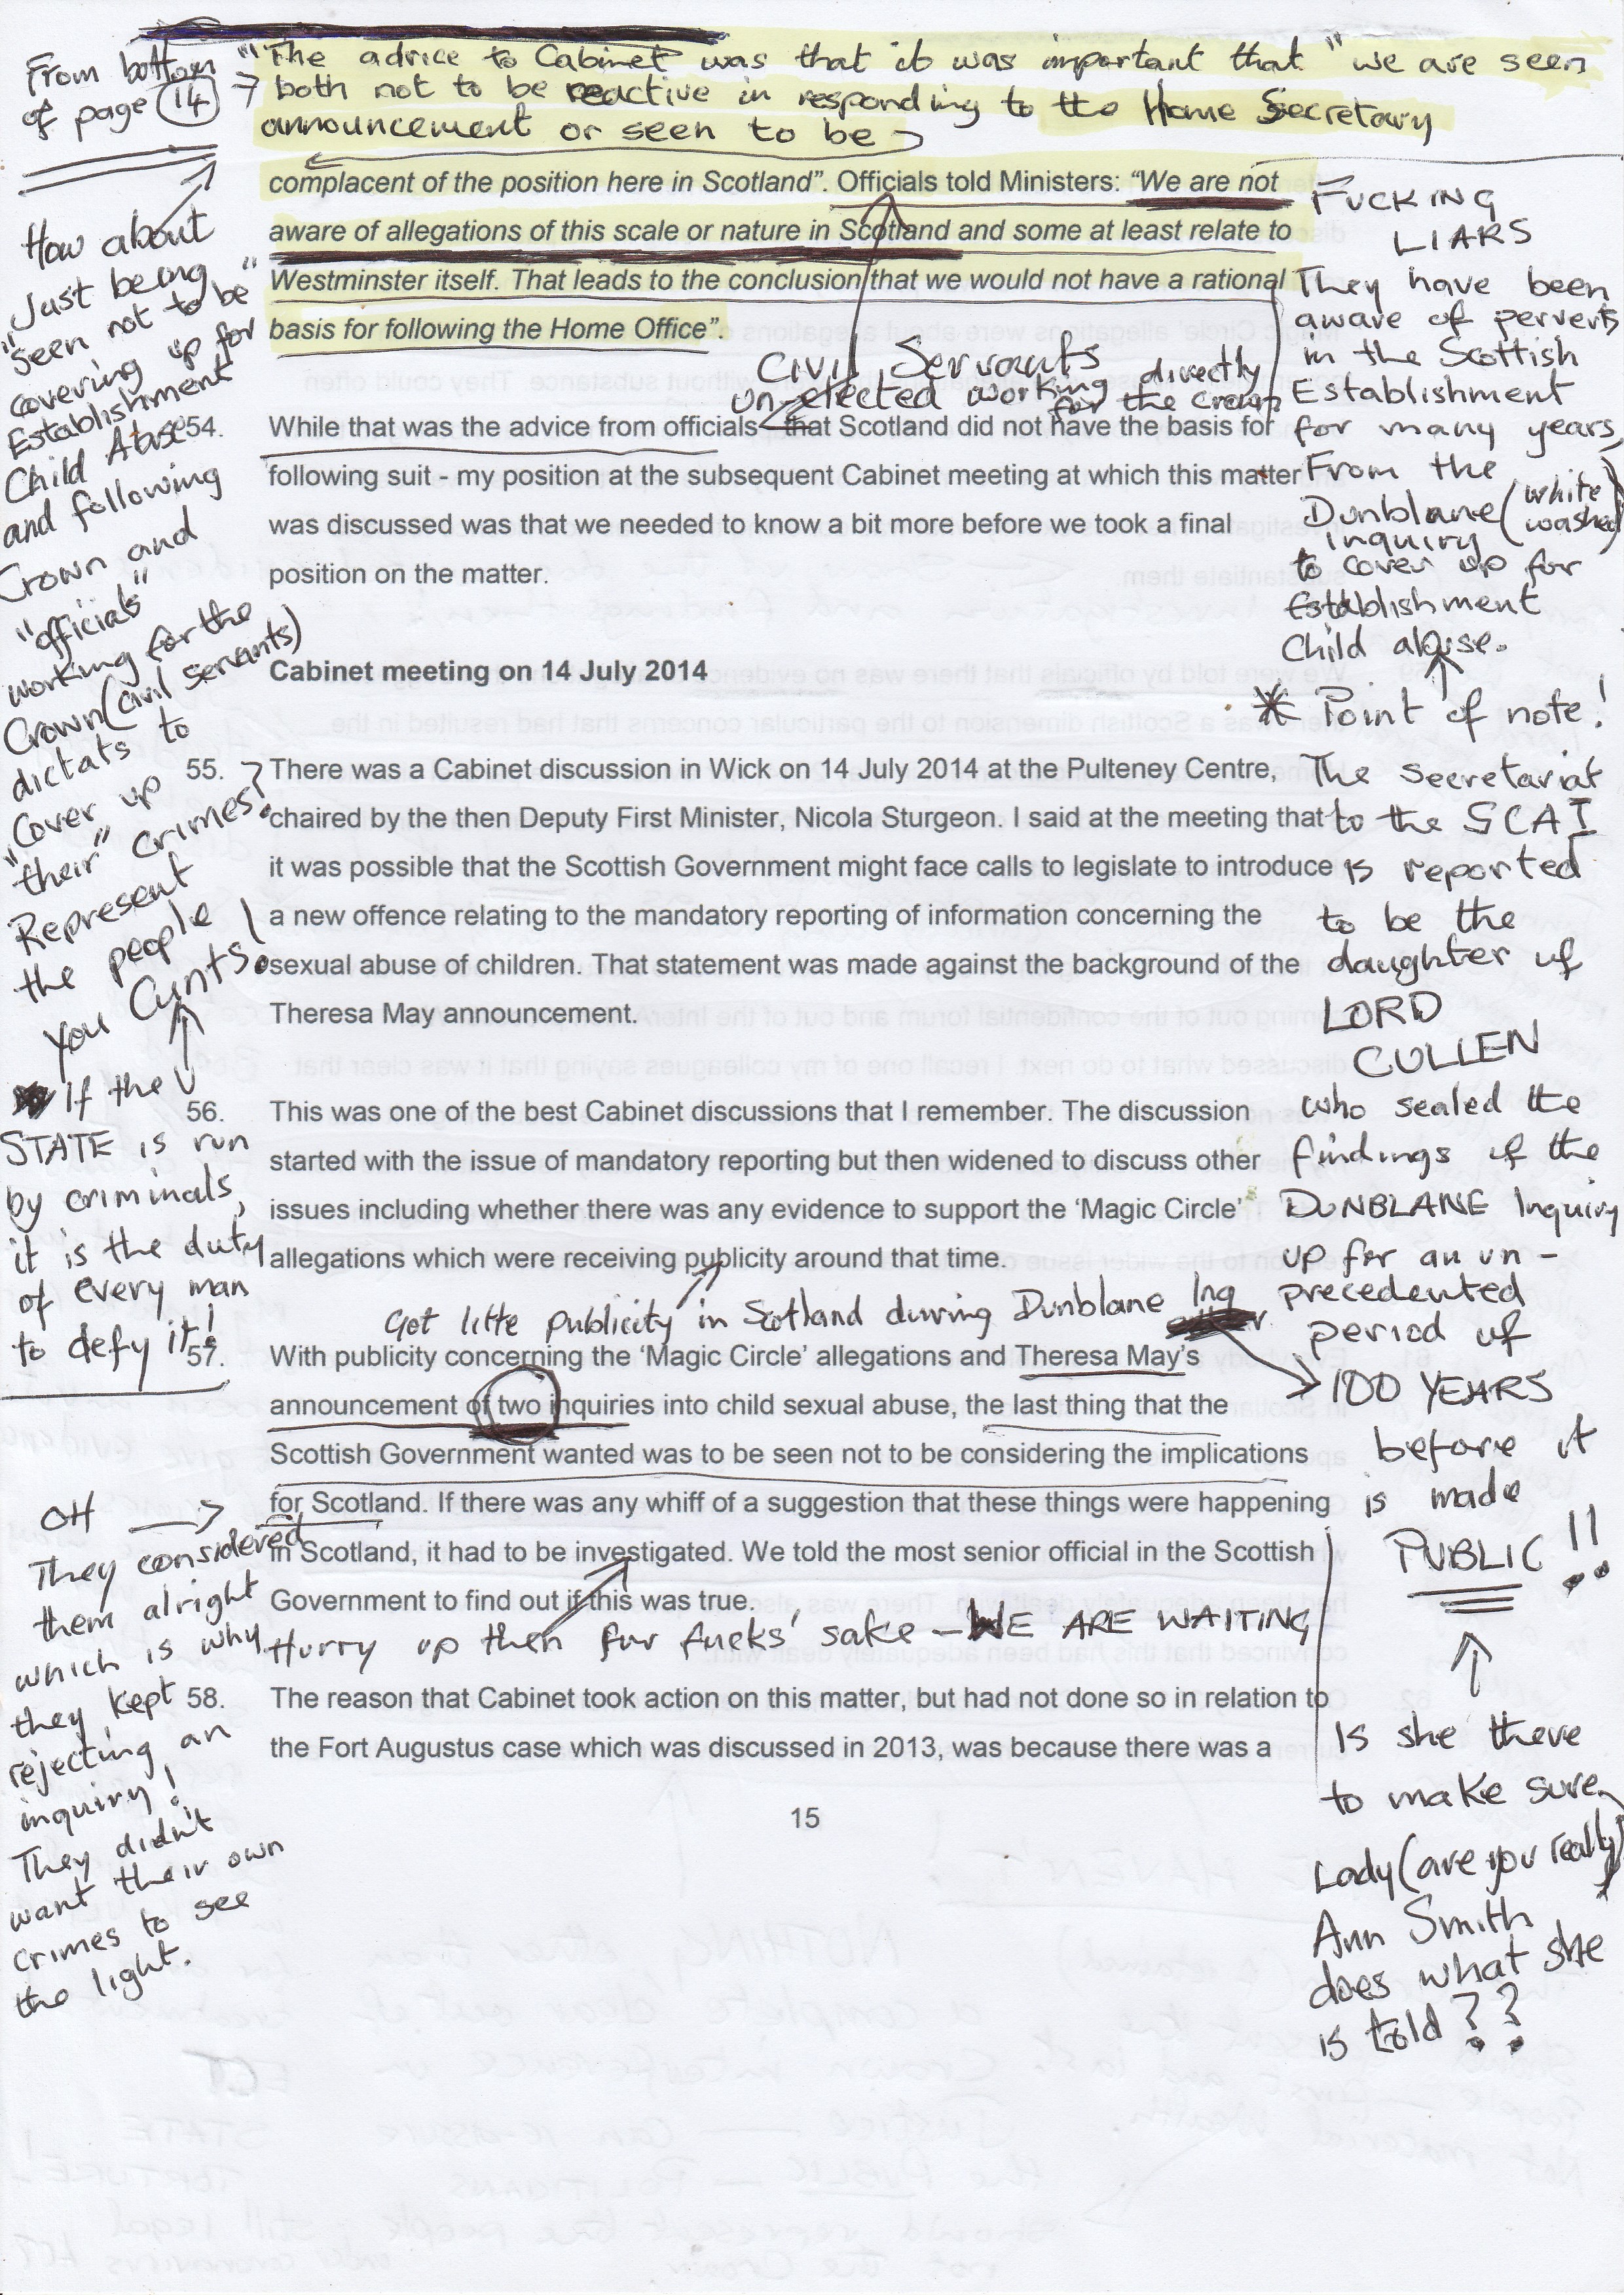 From bottom
of page 14 →
"The advice to Cabinet was that it was important that "we are seen
both not to be reactive in responding to the Home Secretary
announcement or seen to be
complacent of the position here in Scotland". Officials told Ministers: "We are not
aware of allegations of this scale or nature in Scotland and some at least relate to
Westminster itself. That leads to the conclusion that we would not have a rational
basis for following the Home Office".
Civil Servants
un-elected working directly
for the crown
54. While that was the advice from officials - that Scotland did not have the basis for
following suit - my position at the subsequent Cabinet meeting at which this matter
was discussed was that we needed to know a bit more before we took a final
position on the matter.
Cabinet meeting on 14 July 2014
55. There was a Cabinet discussion in Wick on 14 July 2014 at the Pulteney Centre,
chaired by the then Deputy First Minister, Nicola Sturgeon. I said at the meeting that
it was possible that the Scottish Government might face calls to legislate to introduce
a new offence relating to the mandatory reporting of information concerning the
sexual abuse of children. That statement was made against the background of the
Theresa May announcement.
56. This was one of the best Cabinet discussions that I remember. The discussion
started with the issue of mandatory reporting but then widened to discuss other
issues including whether there was any evidence to support the 'Magic Circle'
allegations which were receiving publicity around that time.
Got little publicity in Scotland during Dunblane Inq
57. With publicity concerning the 'Magic Circle' allegations and Theresa May's
announcement of two inquiries into child sexual abuse, the last thing that the
Scottish Government wanted was to be seen not to be considering the implications
for Scotland. If there was any whiff of a suggestion that these things were happening
in Scotland, it had to be investigated. We told the most senior official in the Scottish
Government to find out if this was true.
Hurry up then for fucks' sake - WE ARE WAITING
58. The reason that Cabinet took action on this matter, but had not done so in relation to
the Fort Augustus case which was discussed in 2013, was because there was a
15
How about
Just being
"seen not to be"
covering up for
Establishment
Child Abuse
and following
Crown and
"officials"
working for the
Crown (civil servants)
dictats to
"Cover up
"their" crimes?
Represent
the people
you Cunts!
If the
STATE is run
by criminals,
it is the duty
of every man
to defy it!
OH →
They considered
them alright
which is why
they kept
rejecting an
inquiry!
They didn't
want their own
crimes to see
the light.
FUCKING
LIARS
They have been
aware of perverts
in the Scottish
Establishment
for many years,
From the
Dunblane (white
washed)
inquiry
to cover up for
Establishment
Child abuse.
* Point of note!
The secretariat
to the SCAI
is reported
to be the
daughter of
LORD
CULLEN
who sealed the
findings of the
DUNBLANE Inquiry
up for an un-
precedented
period of
100 YEARS
before it
is made
PUBLIC!!
Is she there
to make sure,
Lady (are you really)
Ann Smith
does what she
is told??